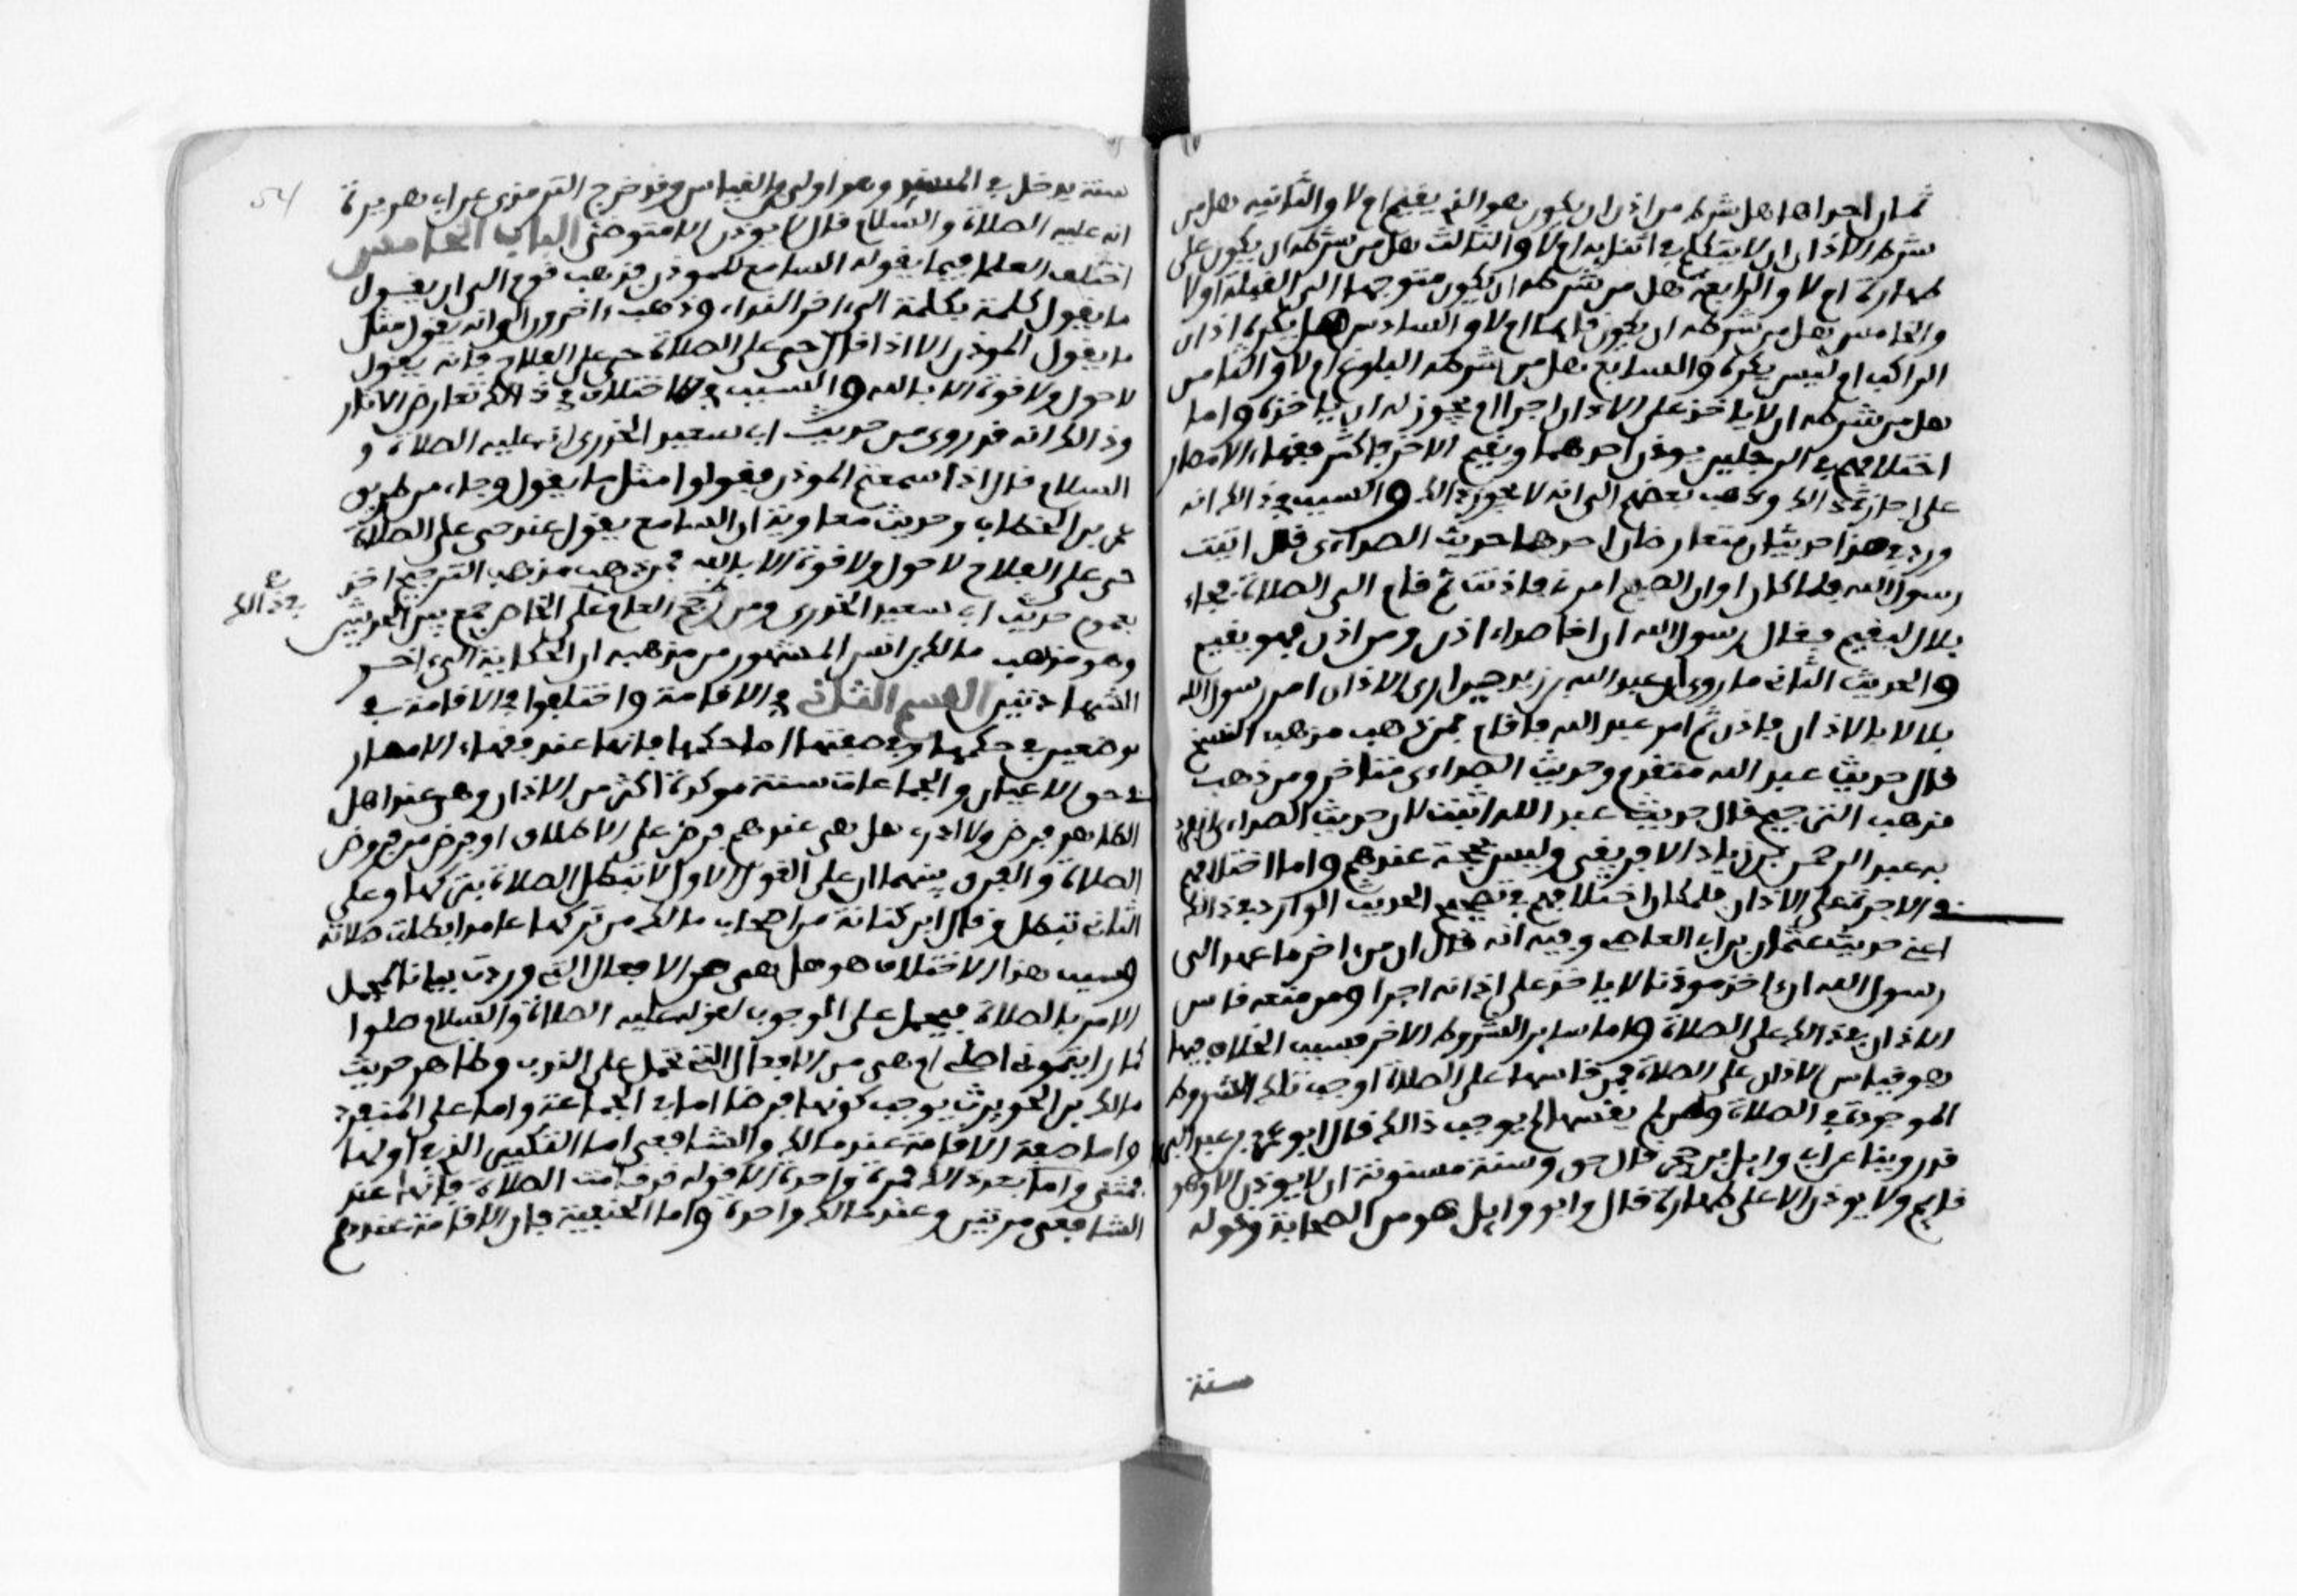 ثمان احداها هل شرط من اذن ان يكون هو الذي يقيم ام لا والثانية هل من
شرط الاذان ان لا يتكلم في اثنايه ام لا والثالث هل من شرطه ان يكون على
طهارة ام لا والرابعة هل من شرطه ان يكون متوجها الى القبلة او لا
والخامس هل من شرطه ان يكون قايما ام لا والسادس هل يكره اذان
الراكب ام ليس يكره والسابع هل من شرطه البلوغ ام لا والثامن
هل من شرطه ان لا ياخذ على الاذان اجرا ام يجوز له ان ياخذه واما
اختلافهم في الرجلين يوذن احدهما ويقيم الاخر فاكثر فقهاء الامصار
على اجازة ذالك وذهب بعضهم الى انه لا يجوز ذالك والسبب في ذالك انه
ورد في هذا حديثان متعارضان احدهما حديث الصداءى قال اتيت
رسول الله فلما كان اوان الصبح امرني فاذنت ثم قام الى الصلاة فجاء
بلال ليقيم فقال رسول الله ان اخا صداء اذن ومن اذن فهو يقيم
والحديث الثاني ما روي ان عبد الله بن زيد حين اري الاذان امر رسول الله
بلالا بالاذان فاذن ثم امر عبد الله فاقام فمن ذهب مذهب النسخ
قال حديث عبد الله متقدم وحديث الصداءى متاخر ومن ذهب
مذهب الترجيح قال حديث عبد الله اثبت لان حديث الصداءى انفرد
به عبد الرحمن بن زياد الافريقي وليس بحجة عندهم واما اختلافهم
في الاجرة على الاذان فلمكان اختلافهم في تصحيح الحديث الوارد في ذالك
اعني حديث عثمان بن ابي العاص وفيه انه قال ان من اخر ما عهد الى
رسول الله ان اتخذ موذنا لا ياخذ على اذانه اجرا ومن منعه قاس
الاذان في ذالك على الصلاة واما ساير الشروط الاخر فسبب الخلاف فيها
هو قياس الاذان على الصلاة فمن قاسها على الصلاة اوجب تلك الشروط
الموجودة في الصلاة ومن لم يقسها لم يوجب ذالك قال ابو عمر بن عبد البر
قد روينا عن ابي وايل بن حجر قال حق وسنة مسنونة ان لا يوذن الا وهو
قايم ولا يوذن الا على طهارة قال وابو وايل هو من الصحابة وقوله
سنة
54
سنة يدخل في المسند وهو اولى من القياس وقد خرج الترمذي عن ابي هريرة
انه عليه الصلاة والسلام قال لا يوذن الا متوضئ الباب الخامس
اختلف العلما فيما يقوله السامع للموذن فذهب قوم الى ان يقول
ما يقول كلمة بكلمة الى اخر النداء وذهب اخرون الى انه يقول مثل
ما يقول الموذن الا اذا قال حي على الصلاة حي على الفلاح فانه يقول
لا حول ولا قوة الا بالله والسبب في الاختلاف في ذالك تعارض الاثار
وذالك انه قد روي من حديث ابي سعيد الخدري انه عليه الصلاة و
السلام قال اذا سمعتم الموذن فقولوا مثل ما يقول وجاء من طريق
عمر بن الخطاب وحديث معاوية ان السامع يقول عند حي على الصلاة
حي على الفلاح لا حول ولا قوة الا بالله فمن ذهب مذهب الترجيح اخذ
بعموم حديث ابي سعيد الخدري ومن بنى العام على الخاص جمع بين الحديثين
في ذالك
وهو مذهب مالك بن انس المشهور من مذهبه ان الحكاية الى اخر
الشهادتين القسم الثاني في الاقامة واختلفوا في الاقامة في
موضعين في حكمها وفي صفتها اما حكمها فانها عند فقهاء الامصار
في حق الاعيان والجماعات سنة موكدة اكثر من الاذان وهي عند اهل
الظاهر فرض ولا ادري هل هي عندهم فرض على الاطلاق او فرض من فروض
الصلاة والفرق بينهما ان على القول الاول لا تبطل الصلاة بتركها وعلى
الثاني تبطل وقال ابن كنانة من اصحاب مالك من تركها عامدا بطلت صلاته
وسبب هذا الاختلاف هو هل هي من الافعال التي وردت بيانا لمجمل
الامر بالصلاة فيحمل على الوجوب لقوله عليه الصلاة والسلام صلوا
كما رايتموني اصلي ام هي من الافعال التي تحمل على الندب وظاهر حديث
مالك بن الحويرث يوجب كونها فرضا اما في الجماعة واما على المنفرد
واما صفة الاقامة عند مالك والشافعي اما التكبير الذي في اولها
فمثنى واما بعد ذالك فمرة واحدة الا قوله قد قامت الصلاة فانها عند
الشافعي مرتين وعند مالك واحدة واما الحنفية فان الاقامة عندهم